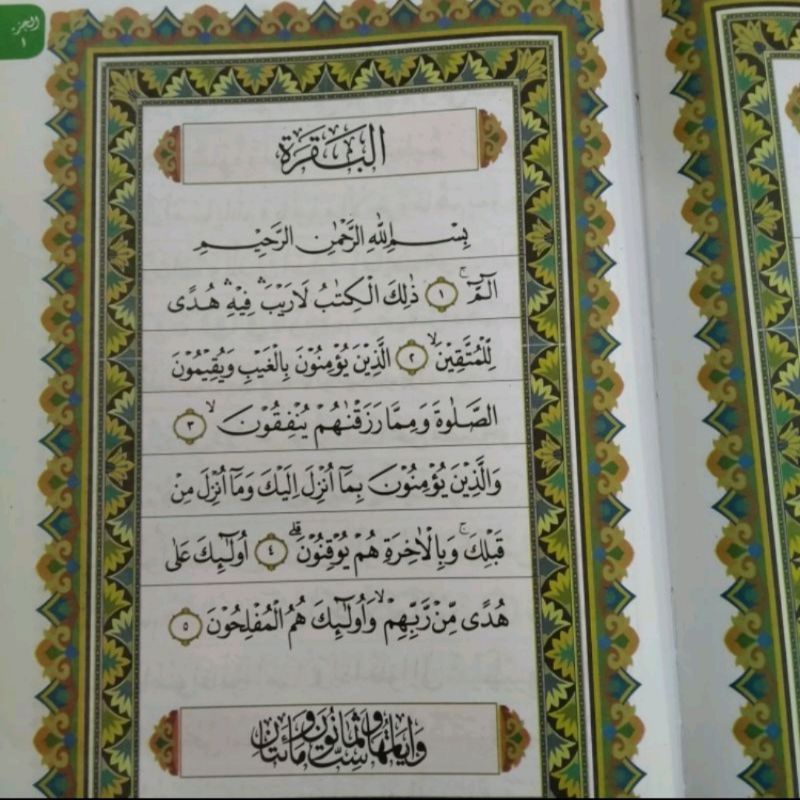 الجزء
١
البقرة
بِسْمِ اللّٰهِ الرَّحْمٰنِ الرَّحِيْمِ
الۤمّۤ ۚ ١ ذٰلِكَ الْكِتٰبُ لَا رَيْبَ ۛ فِيْهِ ۛ هُدًى
لِّلْمُتَّقِيْنَ ۙ ٢ الَّذِيْنَ يُؤْمِنُوْنَ بِالْغَيْبِ وَيُقِيْمُوْنَ
الصَّلٰوةَ وَمِمَّا رَزَقْنٰهُمْ يُنْفِقُوْنَ ۙ ٣
وَالَّذِيْنَ يُؤْمِنُوْنَ بِمَآ اُنْزِلَ اِلَيْكَ وَمَآ اُنْزِلَ مِنْ
قَبْلِكَ ۚ وَبِالْاٰخِرَةِ هُمْ يُوْقِنُوْنَ ۗ ٤ اُولٰۤىِٕكَ عَلٰى
هُدًى مِّنْ رَّبِّهِمْ ۙ وَاُولٰۤىِٕكَ هُمُ الْمُفْلِحُوْنَ ٥
وآياتها ست وثمانون ومائتان